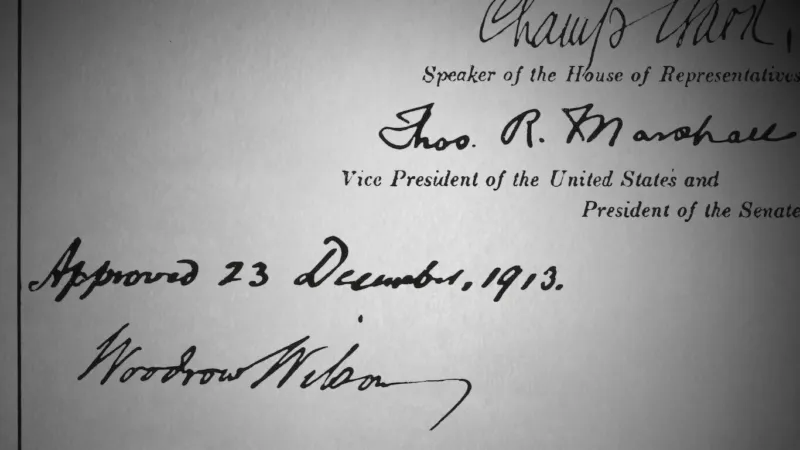 Champ Clark,
Speaker of the House of Representatives
Thos. R. Marshall
Vice President of the United States and
President of the Senate
Approved 23 December, 1913.
Woodrow Wilson